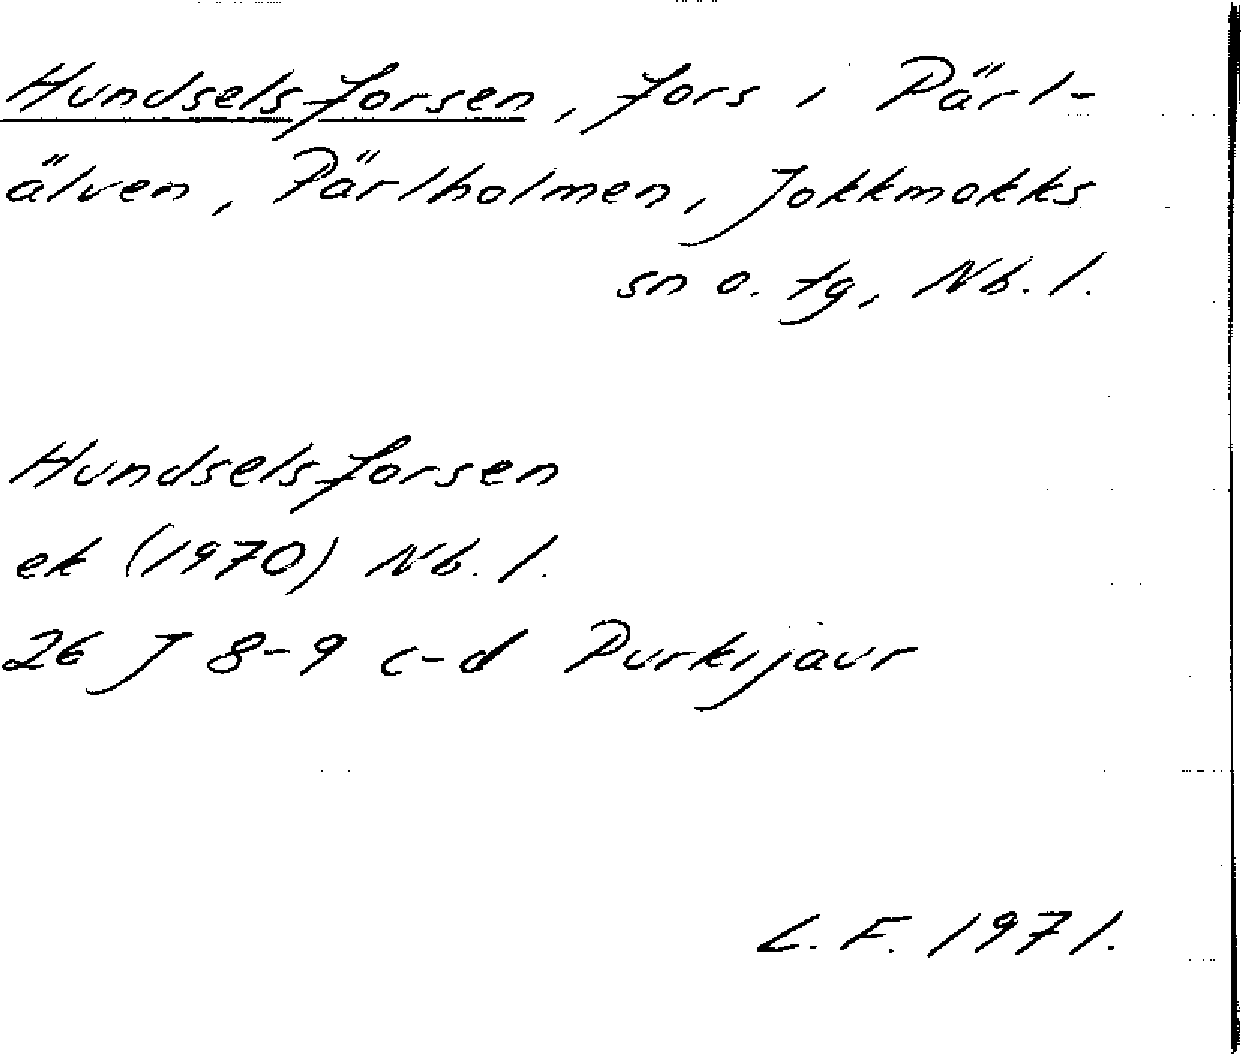 Hundselsforsen, fors i Pärl-
älven, Pärlholmen, Jokkmokks
sn o. tg, Nb. l.
Hundselsforsen
ek (1970) Nb. l.
26 J 8-9 c-d Purkijaur
L. F. 1971.